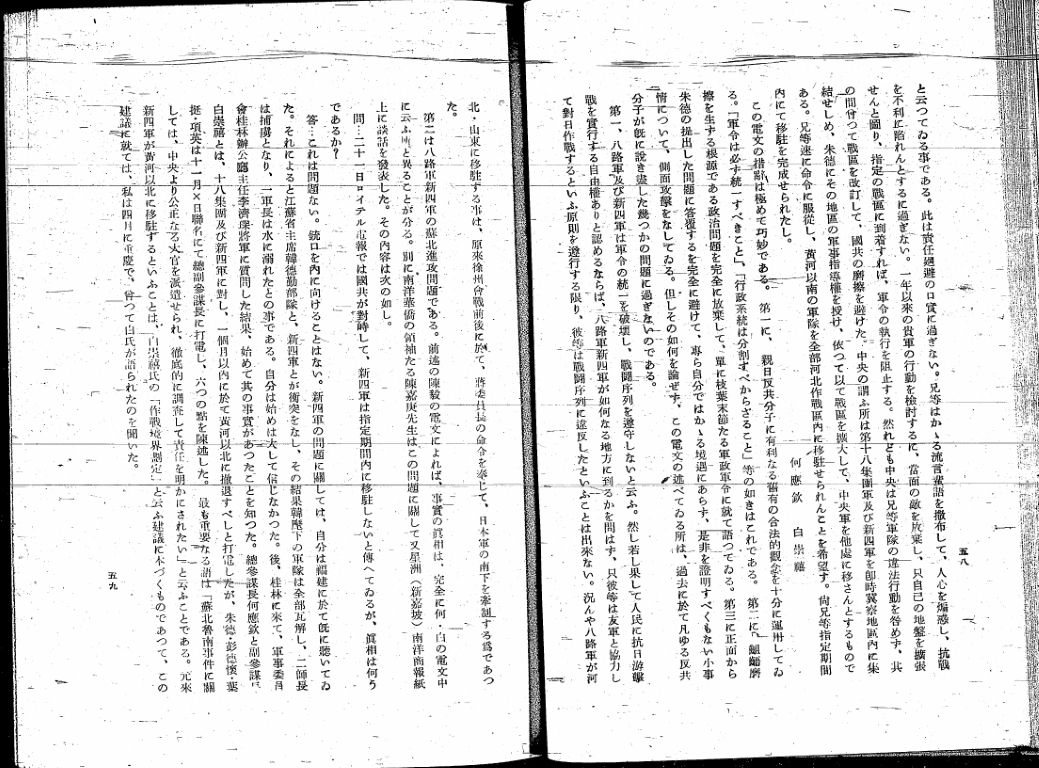 五八
と云つてゐる事である。此は責任廻避の口實に過ぎない。兄等はかゝる流言蜚語を撒布して、人心を煽惑し、抗戰
を不利に陷れんとするに過ぎない。一年以來の貴軍の行動を檢討するに、當面の敵を放棄し、只自己の地盤を擴張
せんと圖り、指定の戰區に到着すれば、軍令の執行を阻止する。然れども中央は兄等軍隊の違法行動を咎めず、共
の間曾つて戰區を改訂して、國共の磨擦を避けた。中央の謂ふ所は第十八集團軍及び新四軍を卽時冀察地區內に集
結せしめ、朱德にその地區の軍事指導權を授け、依つて以て戰區を擴大して、中央軍を他處に移さんとするもので
ある。兄等速に命令に服從し、黃河以南の軍隊を全部河北作戰區內に移駐せられんことを希望す。尙兄等指定期間
內にて移駐を完成せられたし。
何應欽　白崇禧
この電文の措辭は極めて巧妙である。第一に、親日反共分子に有利なる舊有の合法的觀念を十分に運用してゐ
る。「軍令は必ず統一すべきこと」、「行政系統は分割すべからざること」等の如きはこれである。第二に、齟齬磨
擦を生ずる根源である政治問題を完全に放棄して、單に枝葉末節たる軍政軍令に就て語つてゐる。第三に正面から
朱德の提出した問題に答覆するを完全に避けて、專ら自分ではかゝる境遇にあらず、是非を證明すべくもない小事
情について、側面攻擊をなしてゐる。但しその如何を論ぜず、この電文の述べてゐる所は、過去に於て凡ゆる反共
分子が旣に說き盡した幾つかの問題に過ぎないのである。
第一、八路軍及び新四軍は軍令の統一を破壞し、戰鬪序列を遵守しないと云ふ。然し若し果して人民に抗日游擊
戰を實行する自由權ありと認めるならば、八路軍新四軍が如何なる地方に到るかを問はず、只彼等は友軍と協力し
て對日作戰するといふ原則を遵行する限り、彼等は戰鬪序列に違反したといふことは出來ない。況んや八路軍が河
北・山東に移駐する事は、原來徐州會戰前後に於て、蔣委員長の命令を奉じて、日本軍の南下を牽制する爲であつ
た。
第二は八路軍新四軍の蘇北進攻問題である。前述の陳毅の電文によれば、事實の眞相は、完全に何・白の電文中
に云ふ所と異ることが分る。別に南洋華僑の領袖たる陳嘉庚先生はこの問題に關して又星洲（新嘉坡）南洋商報紙
上に談話を發表した。その內容は次の如し。
問…二十一日ロイテル電報では國共が對峙して、新四軍は指定期間內に移駐しないと傳へてゐるが、眞相は何う
であるか？
答…これは問題ない。銃口を內に向けることはない。新四軍の問題に關しては、自分は福建に於て旣に聽いてゐ
た。それによると江蘇省主席韓德勤部隊と、新四軍とが衝突をなし、その結果韓麾下の軍隊は全部瓦解し、二師長
は捕虜となり、一軍長は水に溺れたとの事である。自分は始めは大して信じなかつた。後、桂林に來て、軍事委員
會桂林辦公廳主任李濟琛將軍に質問した結果、始めて其の事實があつたことを知つた。總參謀長何應欽と副參謀長
白崇禧とは、十八集團及び新四軍に對し、一個月以內に於て黃河以北に撤退すべしと打電したが、朱德・彭德懷・葉
挺・項英は十一月×日聯名にて總副參謀長に打電し、六つの點を陳述した。最も重要なる語は「蘇北魯南事件に關
しては、中央より公正なる大官を派遣せられ、徹底的に調査して責任を明かにされたい」と云ふことである。元來
新四軍が黃河以北に移駐するといふことは、白崇禧氏の「作戰境界劃定」と云ふ建議に本づくものであつて、この
建議に就ては、私は四月に重慶で、曾つて白氏が語られたのを聞いた。
五九